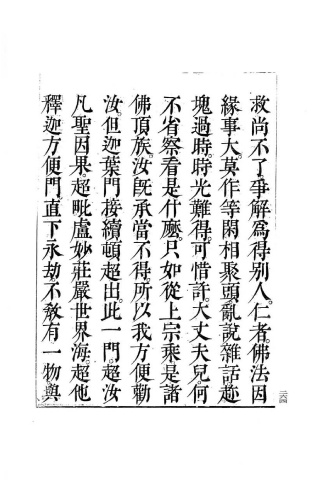 救尚不了爭解爲得别人。仁者。佛法因
緣事大。莫作等閑相聚頭亂說雜話趂
塊過時。時光難得。可惜許。大丈夫兒。何
不省察看是什麽。只如從上宗乘是諸
佛頂族。汝旣承當不得。所以我方便勸
汝。但迦葉門接續頓超出。此一門。超汝
凡聖因果超毗盧妙莊嚴世界海。超他
釋迦方便門。直下永劫。不敎有一物與
二六四